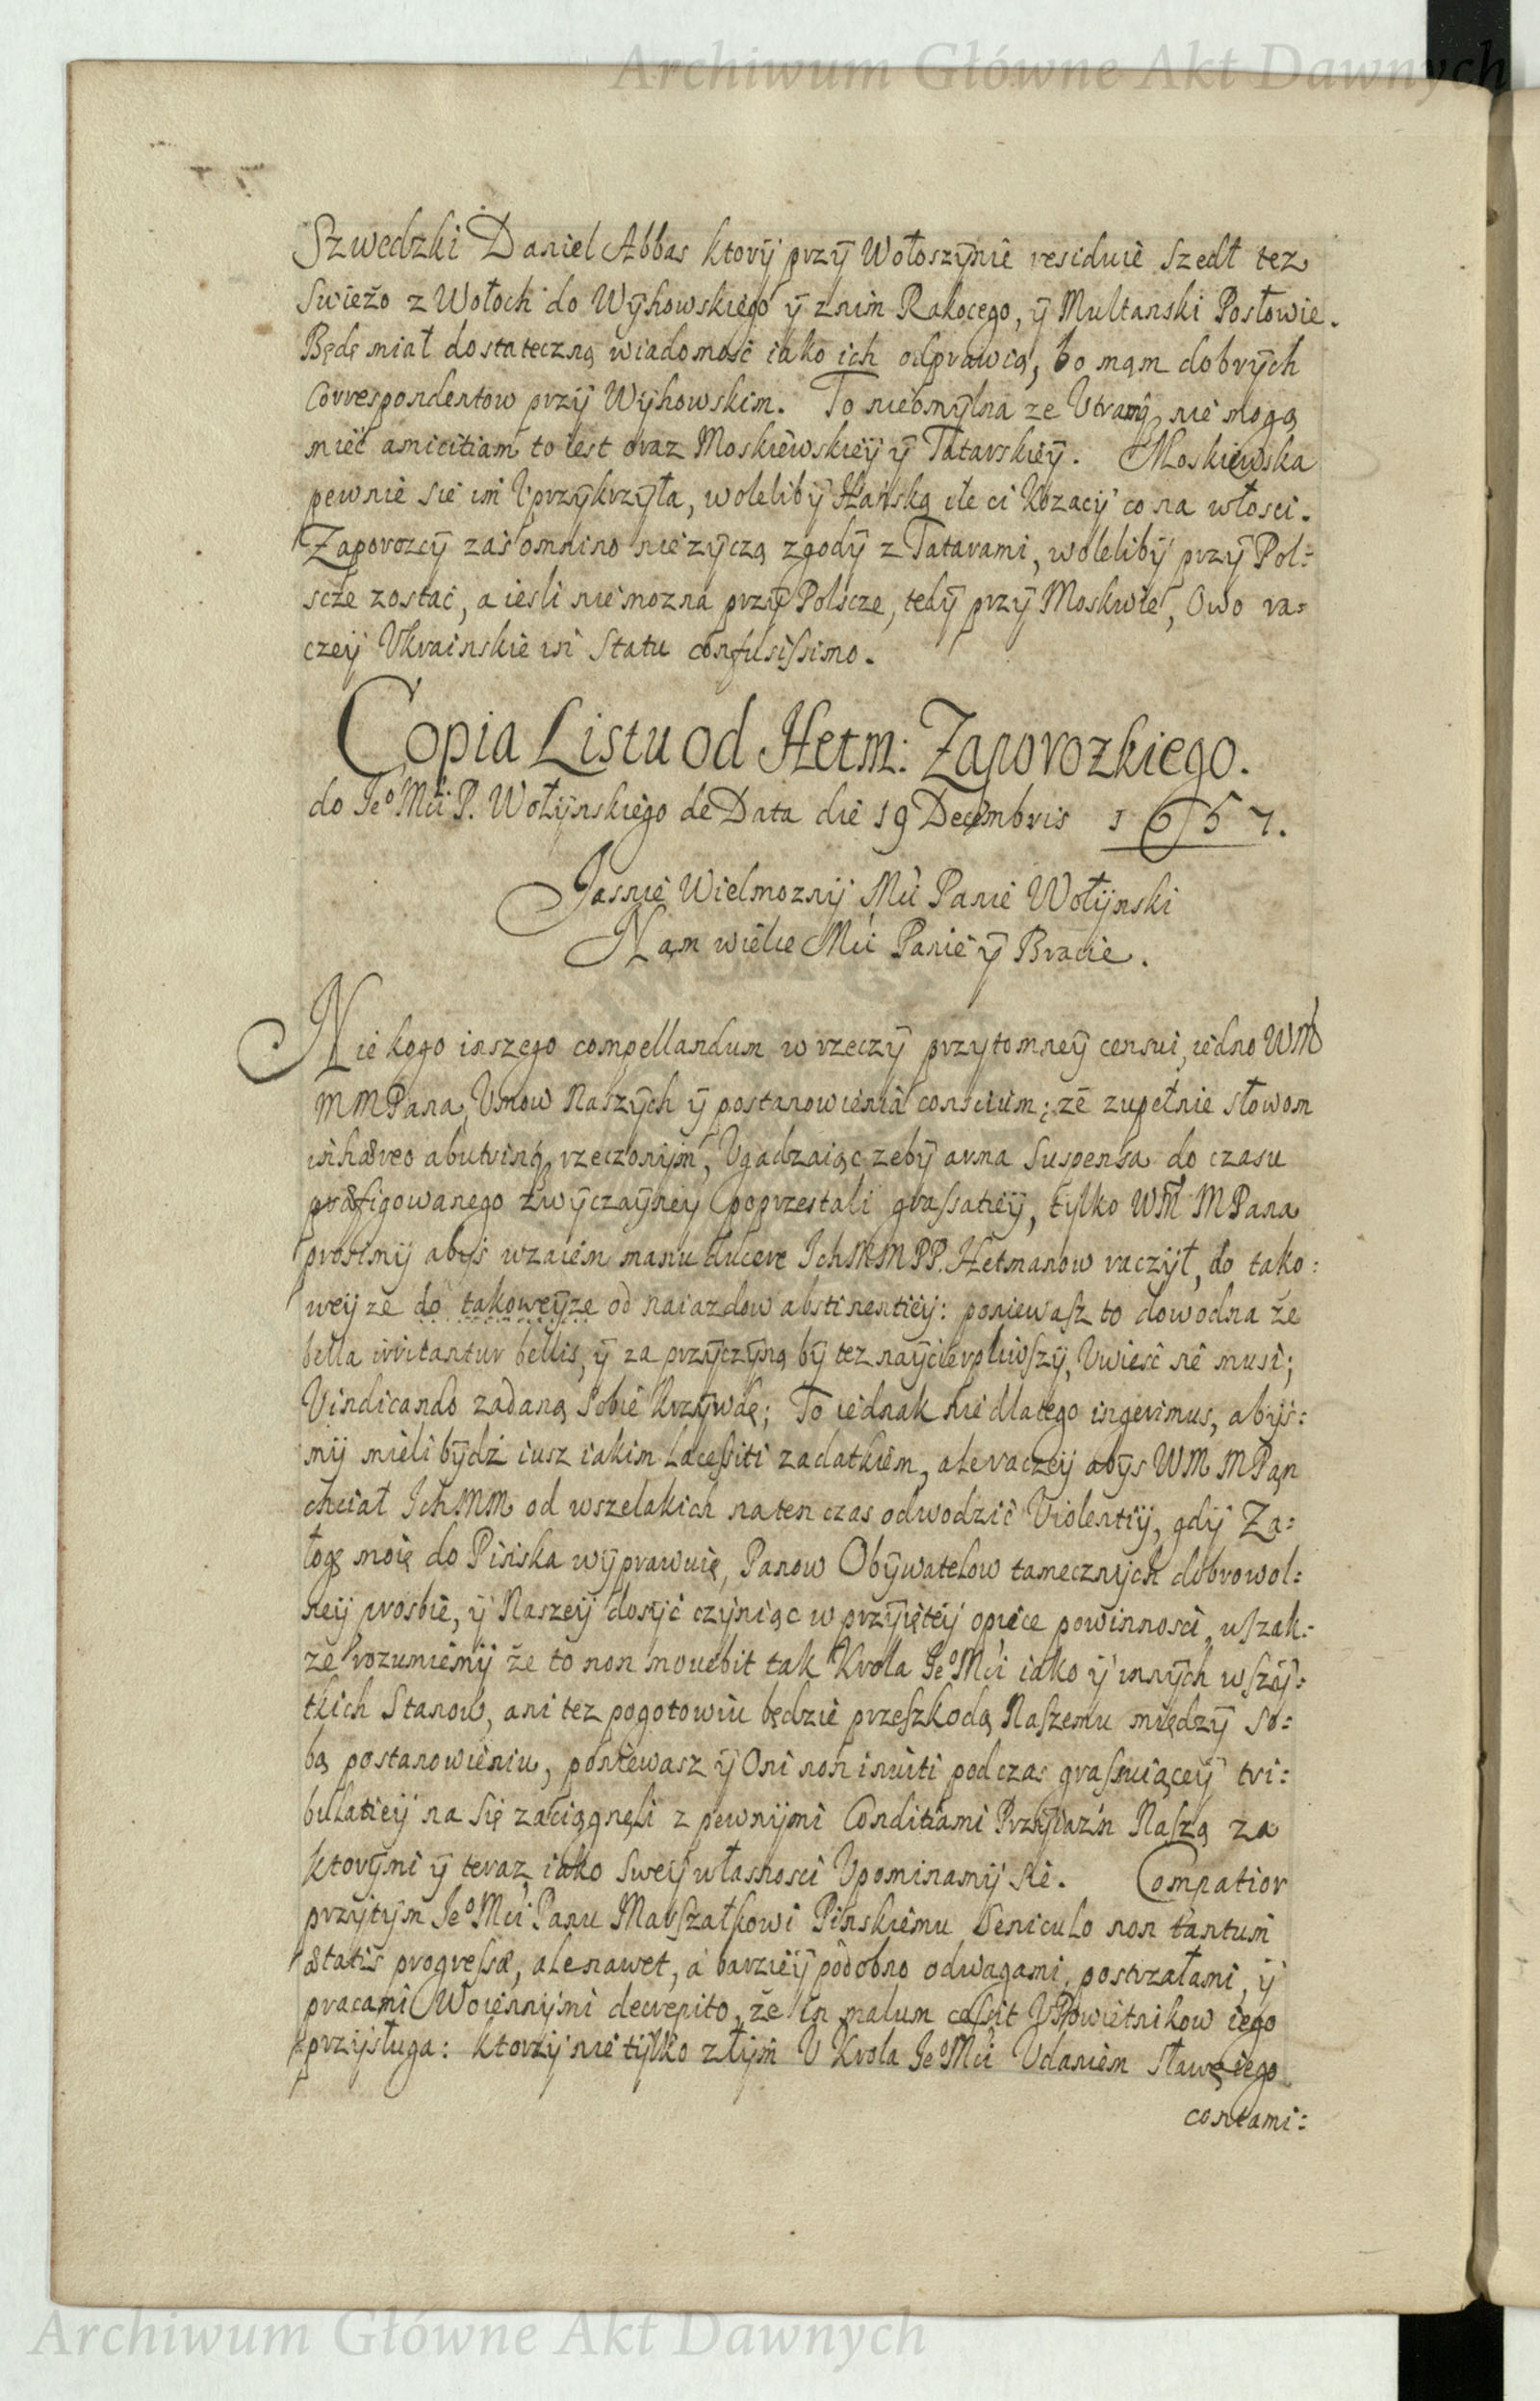 Archiwum Główne Akt Dawnych
Szwedzki Daniel Abbas ktorÿ przÿ Wołoszÿnie residuie szedł tez
swiezo z Wołoch do Wÿhowskiego ÿ znim Rakocego, ÿ Multanski Posłowie.
Będę miał dostateczną wiadomosć iako ich odprawią, bo mąm dobrÿch
Correspondentow przÿ Wÿhowskim. To nieomÿlna ze Utramq nie mogą
mieć amicitiam to iest oraz Moskiewskieÿ ÿ Tatarskieÿ. Moskiewska
pewnie sie im Uprzÿkrzÿła, wolelibÿ Hańską ile ci Kozacÿ co na włosci.
Zaporozcÿ zas omnino nie zÿczą zgodÿ z Tatarami, wolelibÿ przÿ Pol:
scze zostać, a iesli nie mozna przÿ Polscze, tedÿ przÿ Moskwie, Owo ra:
czeÿ Ukrainskie in Statu confusissimo.
Copia Listu od Hetm: Zaporozkiego.
do Jeo Mci P. Wołÿnskiego de Data die 19 Decembris 1657.
Jasnie Wielmoznÿ Mci Panie Wołÿnski
Nąm wielce Mci Panie ÿ Bracie.
Nie kogo inszego compellandum w rzeczÿ przytomneÿ censui, iedno WM
MM Pana, Umow Naszÿch ÿ postanowienia conscium; ze zupełnie słowom
inhæreo abutrinq rzeczonÿm, Ugadzaiąc zebÿ arma suspensa do czasu
præfigowanego zwÿczaÿneÿ poprzestali grassatieÿ, tylko WM MPana
prosimÿ abÿs wzaiem manu ducere Ich MM PP. Hetmanow raczÿł, do tako:
weÿ ze do takoweÿze od naiazdow abstinentieÿ: poniewasz to dowodna że
bella irritantur bellis, ÿ za przÿczÿną bÿ tez naÿcierpliwszÿ, Uwiesć sie musi;
Vindicando zadaną sobie krzÿwdę; To iednak nie dlatego ingerimus, abÿs:
mÿ mieli bÿdź iusz iakim Lacessiti zadatkiem, ale raczeÿ abÿs WM MPąn
chciał Ich MM od wszelakich na ten czas odwodzić Violentiÿ, gdÿ Za:
łogę moię do Pinska wÿprawuię, Panow Obÿwatelow tamecznÿch dobrowol:
neÿ prosbie, ÿ Naszeÿ dosÿć czÿniąc w przÿięteÿ opiece powinnosci, wszak:
ze rozumiemÿ że to non mouebit tak Krola Jeo Mci iako ÿ innÿch wszÿ:
tkich Stanow, ani tez pogotowiu będzie przeszkodą Naszemu międzÿ so:
bą postanowieniu, poniewasz ÿ Oni non inuiti podczas grassuiąceÿ tri:
bulatieÿ na się zaciągnęli z pewnÿmi Conditiami Przÿiazń Naszą za
ktorÿmi ÿ teraz iako sweÿ własnosci Upominamÿ sie. Compatior
przÿtÿm Jeo Mci Panu Marszałkowi Pinskiemu Seniculo non tantum
ætatis progressæ, ale nawet, a barzieÿ podobno odwagami, postrzałami, ÿ
pracami Woiennÿmi decrepito, że in malum cessit U Powietnikow iego
przÿsługa: ktorzÿ nie tÿlko złÿm U Krola Jeo Mci Udaniem sławę iego
contami:
Archiwum Główne Akt Dawnych